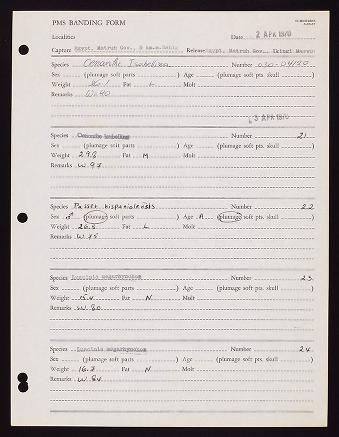 PMS BANDING FORM
Localities Date 2 APR 1970
Capture Egypt, Matruh Gov., Release Egypt, Matruh Gov.,
Species Oenanthe Isabellina Number 030-04120
Sex (plumage soft parts ) Age (plumage soft pts. skull )
Weight Fat Molt
Remarks W. 40
3 APR 1970
Species Oenanthe isabellina Number 21
Sex (plumage soft parts ) Age (plumage soft pts. skull )
Weight 29.8 Fat M Molt
Remarks W. 97
Species Passer hispaniolensis Number 22
Sex ♂ (plumage soft parts ) Age A (plumage soft pts. skull )
Weight 26.8 Fat L Molt
Remarks W 75
Species Luscinia megarhynchos Number 23
Sex (plumage soft parts ) Age (plumage soft pts. skull )
Weight 15.4 Fat N Molt
Remarks W. 80
Species Luscinia megarhynchos Number 24
Sex (plumage soft parts ) Age (plumage soft pts. skull )
Weight 16.7 Fat N Molt
Remarks W. 84